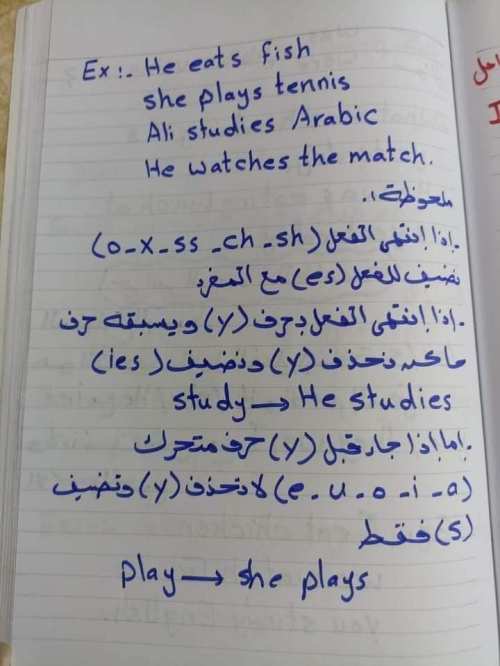 Ex:. He eats fish
she plays tennis
Ali studies Arabic
He watches the match.
ملحوظة:.
.إذا إنتهى الفعل (o_x_ss_ch_sh)
نضيف للفعل (es) مع المفرد
.إذا إنتهى الفعل بحرف (y) ويسبقه حرف
ساكن نحذف (y) ونضيف (ies)
study → He studies
.إما إذا جاء قبل (y) حرف متحرك
(e_u_o_i_a) لا نحذف (y) ونضيف
(s) فقط
play → she plays